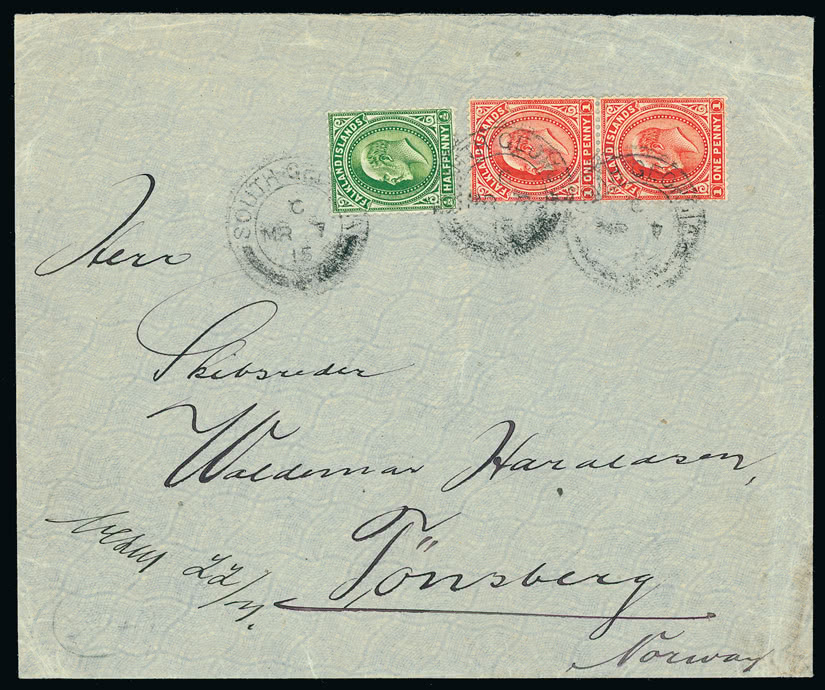 FALKLAND ISLANDS
HALFPENNY
FALKLAND ISLANDS
1 ONE PENNY 1
FALKLAND ISLANDS
1 ONE PENNY 1
SOUTH GEORGIA
C
MR 4
15
Herr
Skibsreder
Waldemar Haraldsen,
Tönsberg
Norway
22/4.